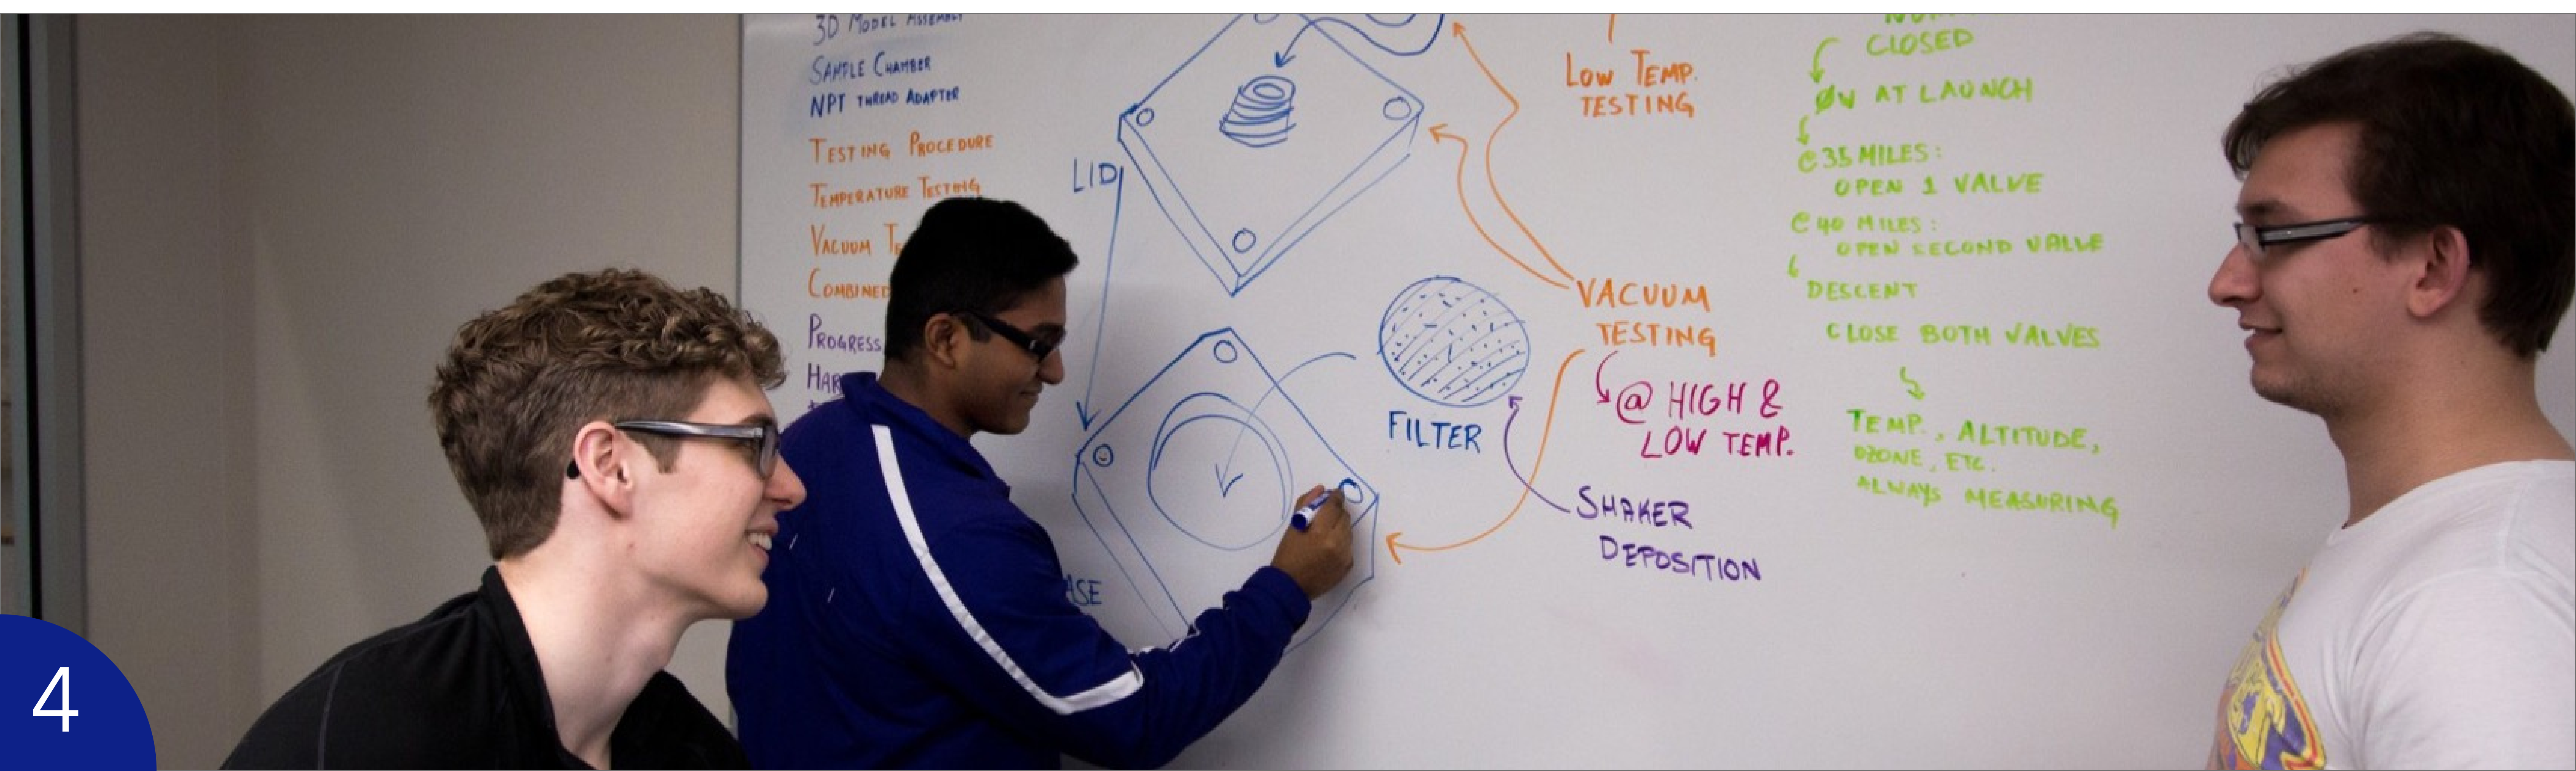 3D MODEL ASSEMBLY
SAMPLE CHAMBER
NPT THREAD ADAPTER
TESTING PROCEDURE
TEMPERATURE TESTING
VACUUM
COMBINED
PROGRESS
LID
FILTER
LOW TEMP.
TESTING
VACUUM
TESTING
@ HIGH &
LOW TEMP.
SHAKER
DEPOSITION
CLOSED
ØV AT LAUNCH
@ 35 MILES:
OPEN 1 VALVE
@ 40 MILES:
OPEN SECOND VALVE
DESCENT
CLOSE BOTH VALVES
TEMP., ALTITUDE,
OZONE, ETC.
ALWAYS MEASURING
4